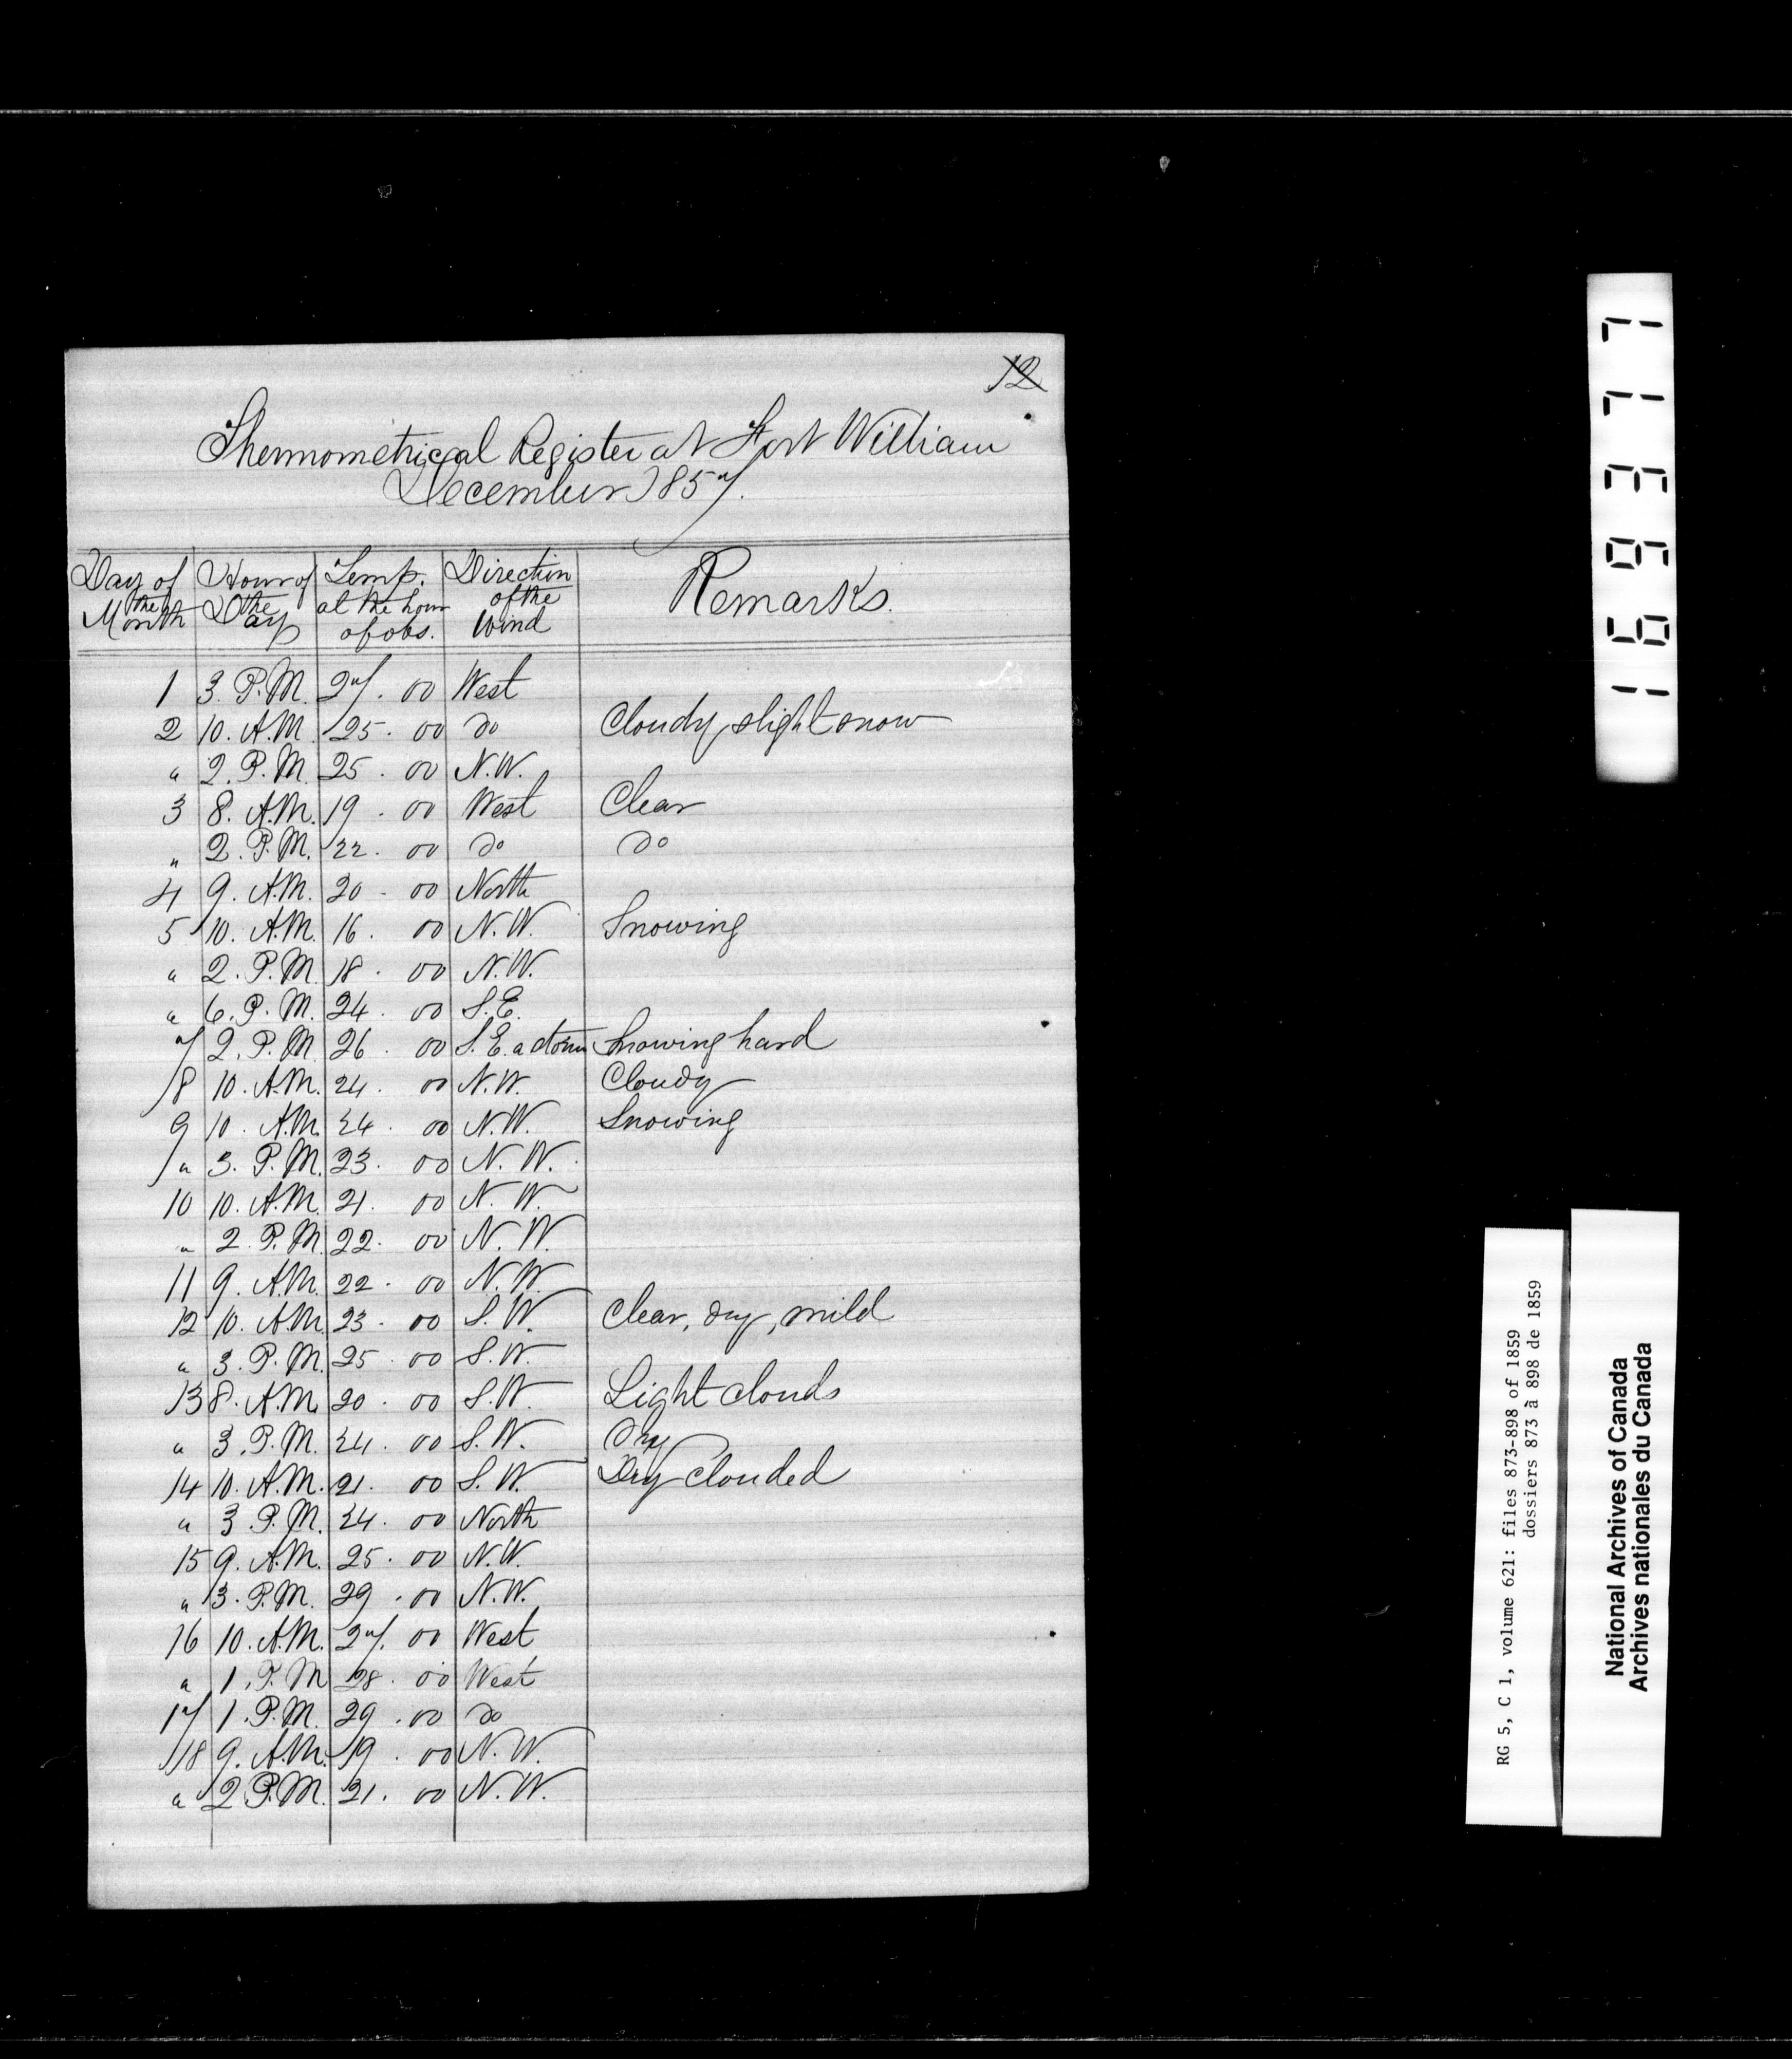 12
Thermometrical Register at Fort William
December 1857.
Day of the Month | Hour of the Day | Temp. at the hour of obs. | Direction of the Wind | Remarks.
1 | 3. P.M. | 27. 00 | West
2 | 10. A.M. | 25. 00 | do | Cloudy slight snow
" | 2. P.M. | 25. 00 | N.W.
3 | 8. A.M. | 19. 00 | West | Clear
" | 2. P.M. | 22. 00 | do | do
4 | 9. A.M. | 20. 00 | North
5 | 10. A.M. | 16. 00 | N.W. | Snowing
" | 2. P.M. | 18. 00 | N.W.
" | 6. P.M. | 24. 00 | S.E.
7 | 2. P.M. | 26. 00 | S.E. a storm | Snowing hard
8 | 10. A.M. | 24. 00 | N.W. | Cloudy
9 | 10. A.M. | 24. 00 | N.W. | Snowing
" | 3. P.M. | 23. 00 | N.W.
10 | 10. A.M. | 21. 00 | N.W.
" | 2. P.M. | 22. 00 | N.W.
11 | 9. A.M. | 22. 00 | N.W.
12 | 10. A.M. | 23. 00 | S.W. | Clear, dry, mild
" | 3. P.M. | 25. 00 | S.W.
13 | 8. A.M. | 20. 00 | S.W. | Light clouds
" | 3. P.M. | 24. 00 | S.W. | Dry
14 | 10. A.M. | 21. 00 | S.W. | Dry clouded
" | 3. P.M. | 24. 00 | North
15 | 9. A.M. | 25. 00 | N.W.
" | 3. P.M. | 29. 00 | N.W.
16 | 10. A.M. | 27. 00 | West
" | 1. P.M. | 28. 00 | West
17 | 1. P.M. | 29. 00 | do
18 | 9. A.M. | 19. 00 | N.W.
" | 2 P.M. | 21. 00 | N.W.
169377
RG 5, C 1, volume 621: files 873-898 of 1859
dossiers 873 à 898 de 1859
National Archives of Canada
Archives nationales du Canada